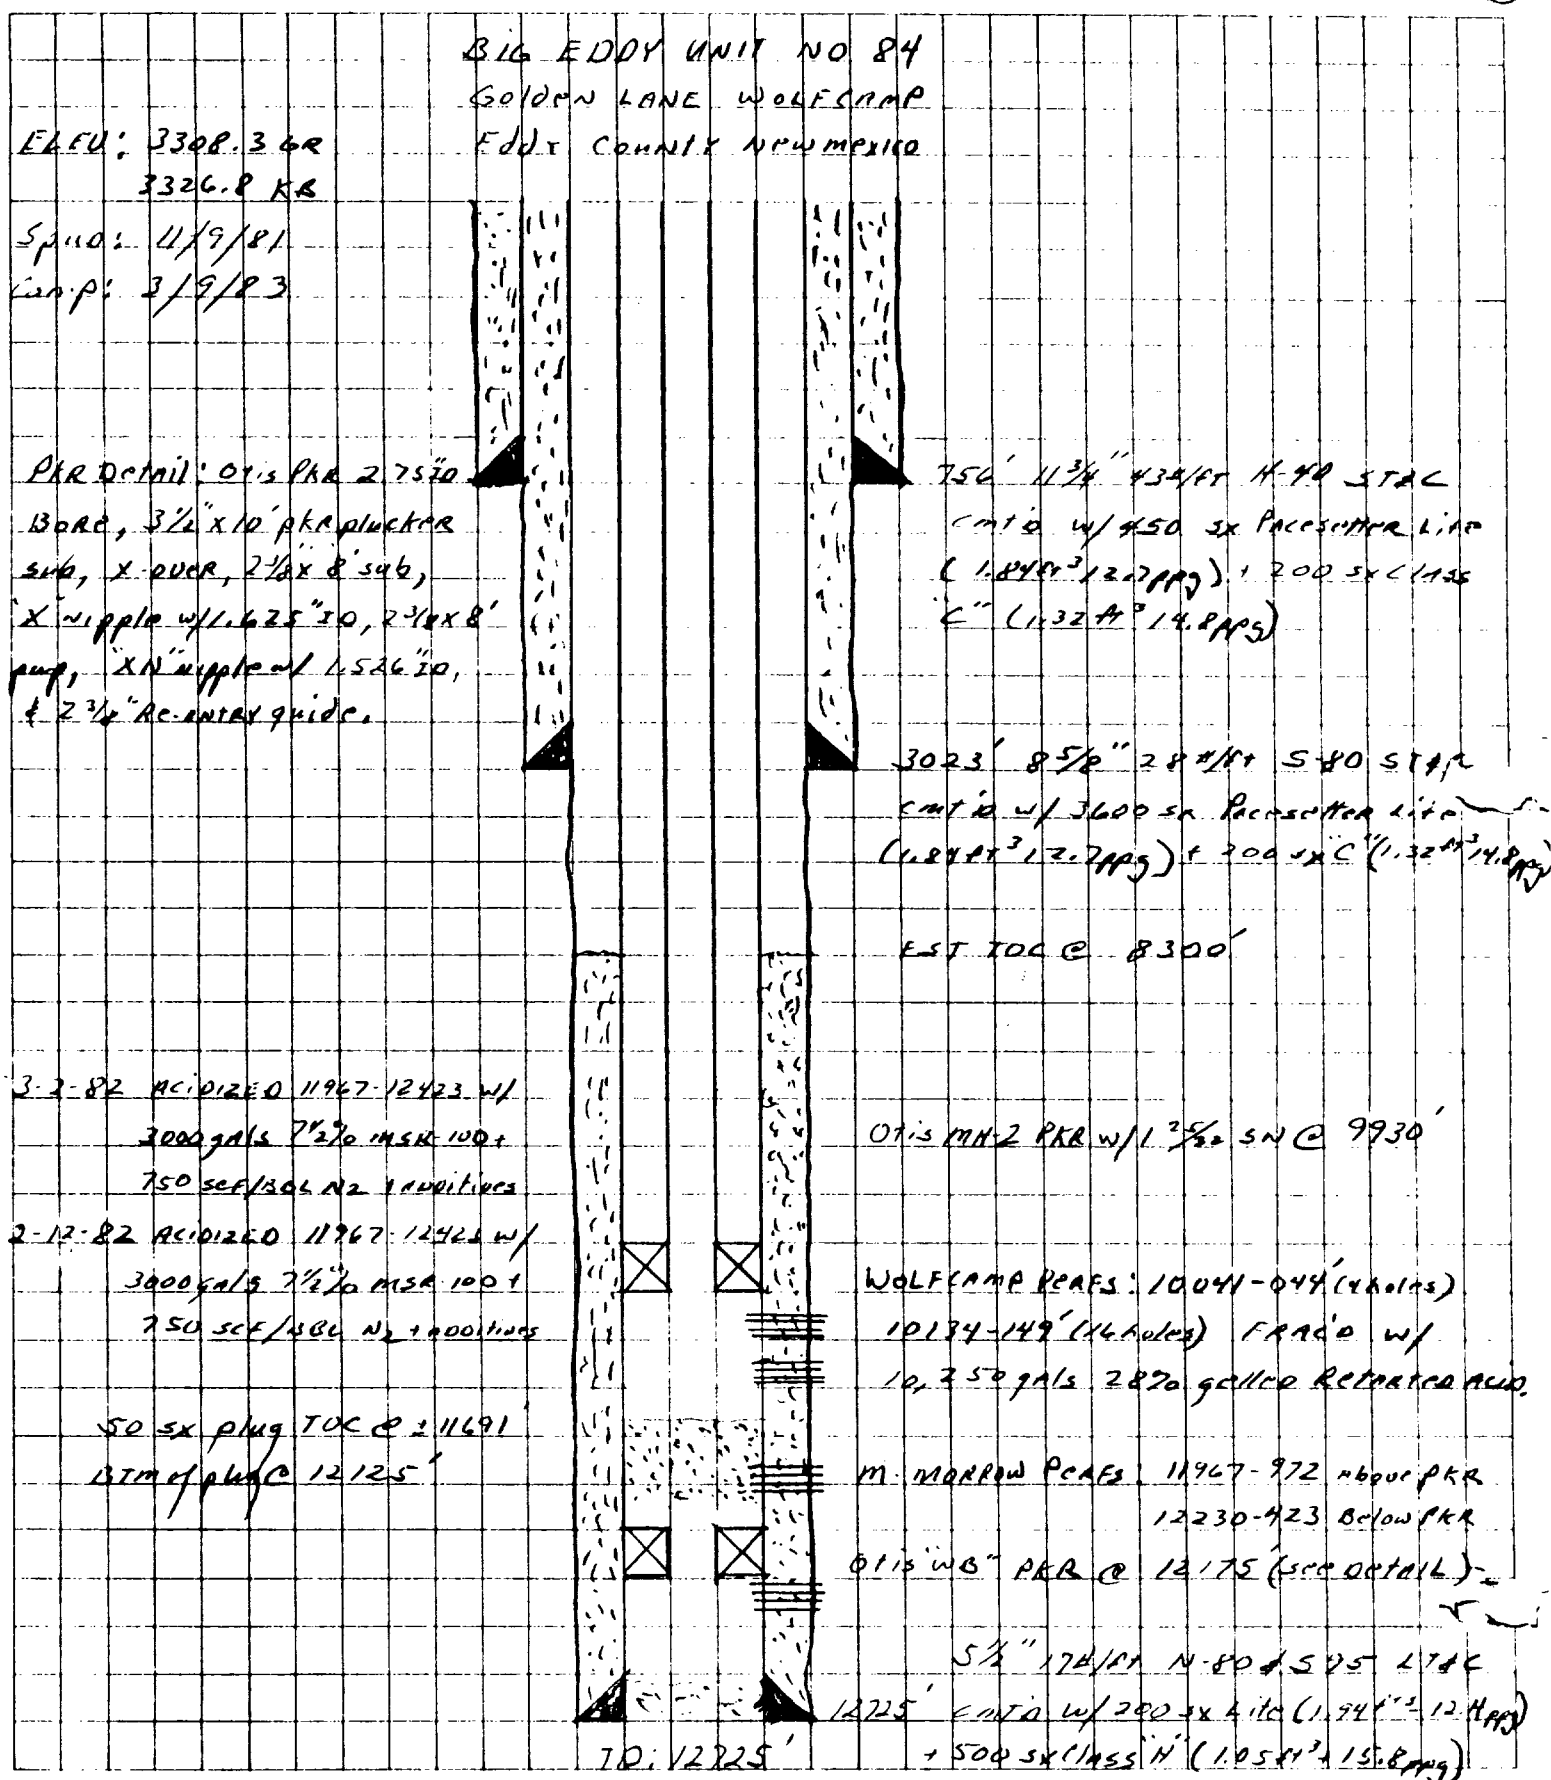 BIG EDDY UNIT NO 84
Golden LANE WOLFCAMP
Eddy County New mexico
ELEV: 3308.3 GR
3326.8 KB
Spud: 11/9/81
Comp: 3/9/83
PKR Detail: Otis PKR 2.75" ID
Bore, 3 1/2" x 10' pkr plucker
sub, X-over, 2 7/8 x 8' sub,
"X" nipple w/ 1.625" ID, 2 3/8 x 8'
pup, "XN" nipple w/ 1.526" ID,
& 2 3/8" Re-entry guide.
756' 11 3/4" 43#/ft H-40 ST&C
cmt'd w/ 450 sx Pacesetter Lite
(1.84 ft³ 12.7 ppg) + 200 sx Class
"C" (1.32 ft³ 14.8 ppg)
3023' 8 5/8" 28#/ft S-80 ST&C
cmt'd w/ 3600 sx Pacesetter Lite
(1.84 ft³ 12.7 ppg) + 200 sx "C" (1.32 ft³ 14.8 ppg)
EST TOC @ 8300'
3-2-82 ACIDIZED 11967-12423 w/
3000 gals 7 1/2% MSR-100 +
750 scf/BBL N2 + additives
2-12-82 ACIDIZED 11967-12423 w/
3000 gals 7 1/2% MSR 100 +
750 scf/BBL N2 + additives
Otis MH-2 PKR w/ 1 25/32 SN @ 9930'
WOLFCAMP PERFS: 10041-044' (4 holes)
10134-149' (16 holes) FRAC'D w/
10,250 gals 28% gelled Retarted Acid.
50 sx plug TOC @ ± 11691'
BTM of plug @ 12125'
M. MORROW PERFS: 11967-972 Above PKR
12230-423 Below PKR
Otis "WB" PKR @ 12175' (see Detail)
5 1/2" 17#/ft N-80 & S-95 LT&C
12725' cmt'd w/ 200 sx Lite (1.94 ft³ 12.4 ppg)
+ 500 sx Class "H" (1.05 ft³ 15.8 ppg)
TD: 12725'